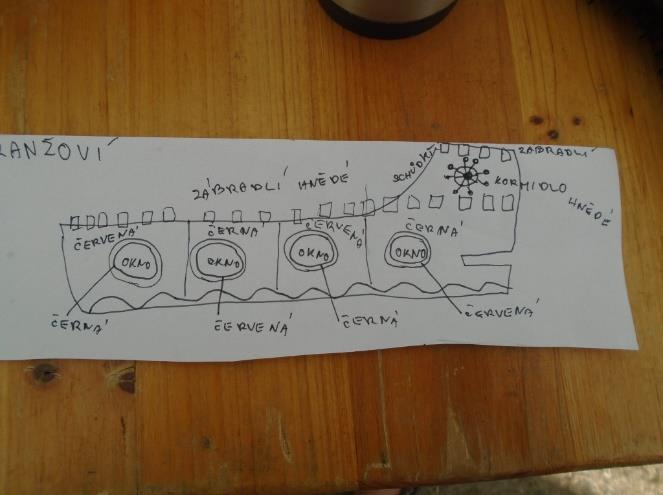 RANŽOVÍ
ZÁBRADLÍ HNĚDÉ
SCHŮDKY
ZÁBRADLÍ
KORMIDLO
HNĚDÉ
ČERVENÁ
ČERNÁ
ČERVENÁ
ČERNÁ
OKNO
OKNO
OKNO
OKNO
ČERNÁ
ČERVENÁ
ČERNÁ
ČERVENÁ